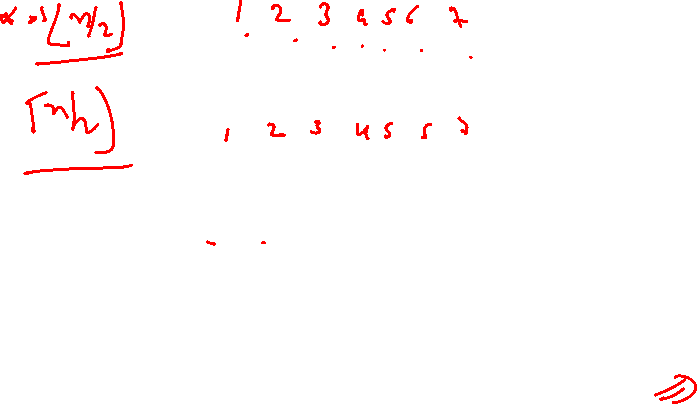 ⌊n/2⌋ 1 2 3 4 5 6 7
⌈n/2⌉ 1 2 3 4 5 5 7